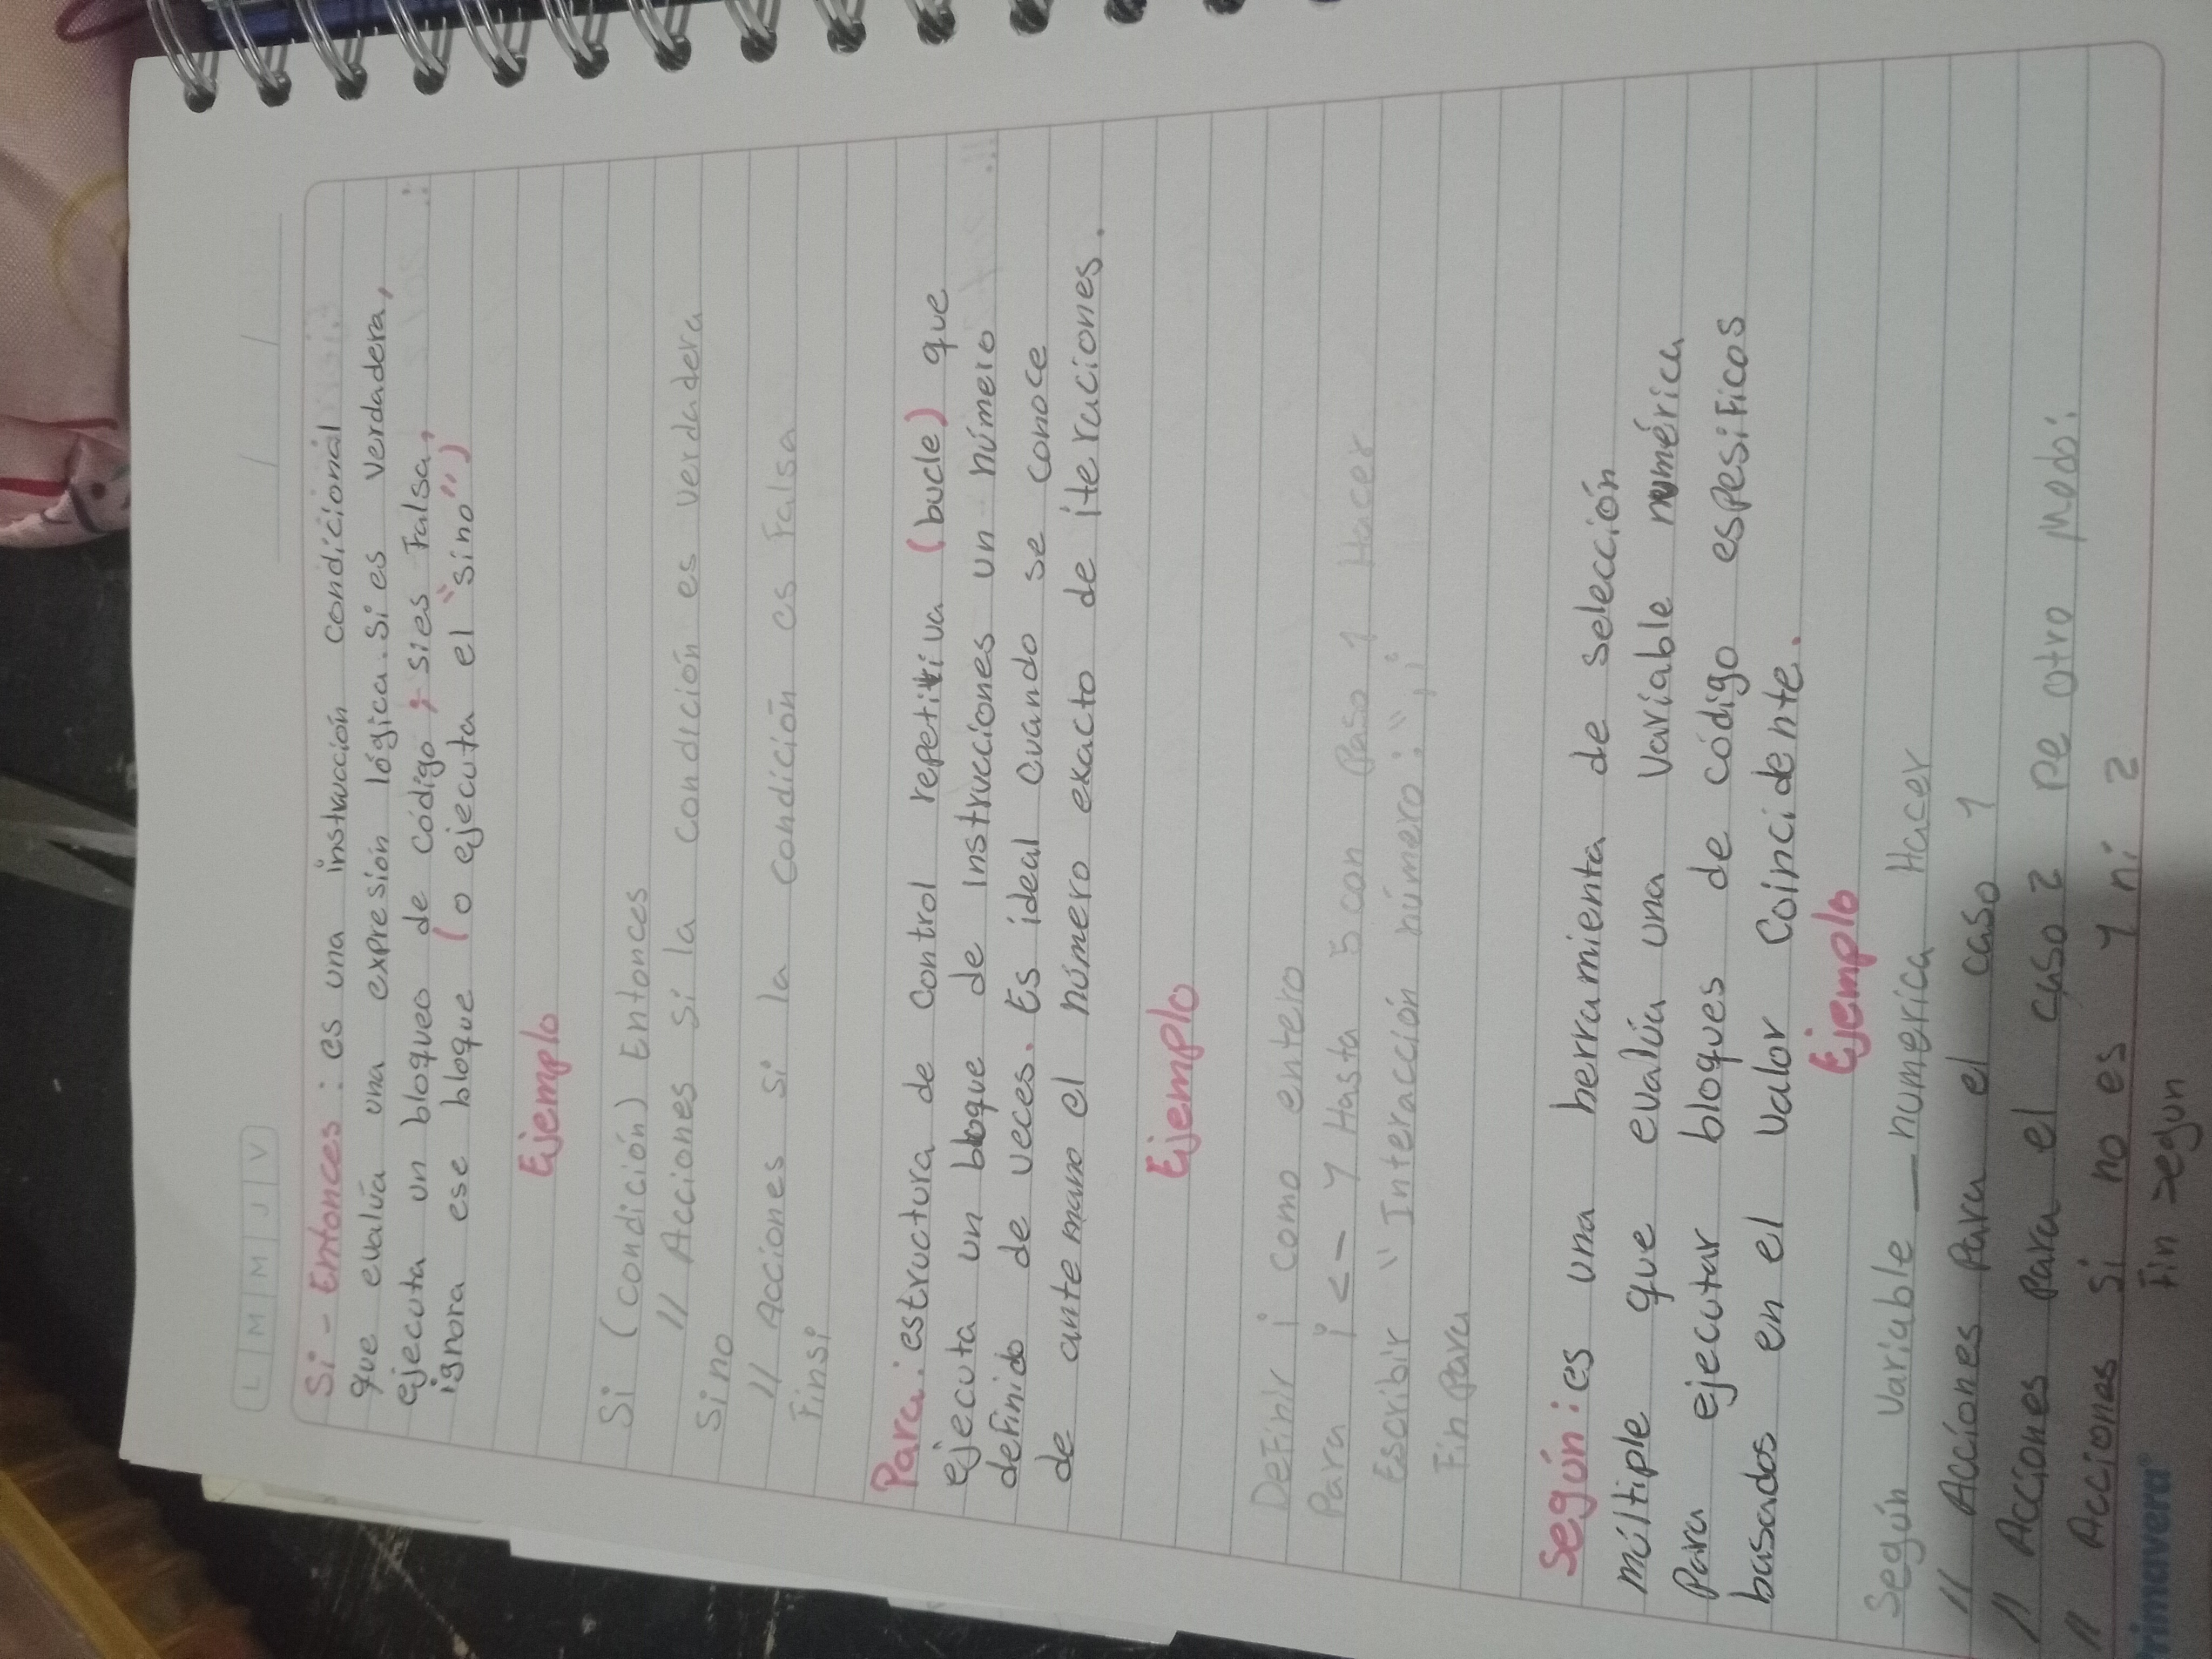 L M M J V
Si - Entonces: es una instrucción condicional
que evalúa una expresión lógica. Si es verdadera,
ejecuta un bloqueo de código; si es Falsa,
ignora ese bloque (o ejecuta el "sino")
Ejemplo
Si (condición) Entonces
// Acciones si la condición es verdadera
Sino
// Acciones si la condición es Falsa
Finsi
Para: estructura de control repetitiva (bucle) que
ejecuta un bloque de instrucciones un número
definido de veces. Es ideal cuando se conoce
de ante mano el número exacto de iteraciones.
Ejemplo
Definir i como entero
Para i <- 1 Hasta 5 con Paso 1 Hacer
Escribir "Interacción número:", i
Fin Para
Según: es una herramienta de selección
múltiple que evalúa una variable numérica
Para ejecutar bloques de código espesificos
basados en el valor coincidente.
Ejemplo
Según variable_numerica Hacer
// Acciones Para el caso 1
// Acciones Para el caso 2 De otro Modo:
// Acciones si no es 1 ni 2
Fin segun
Primavera